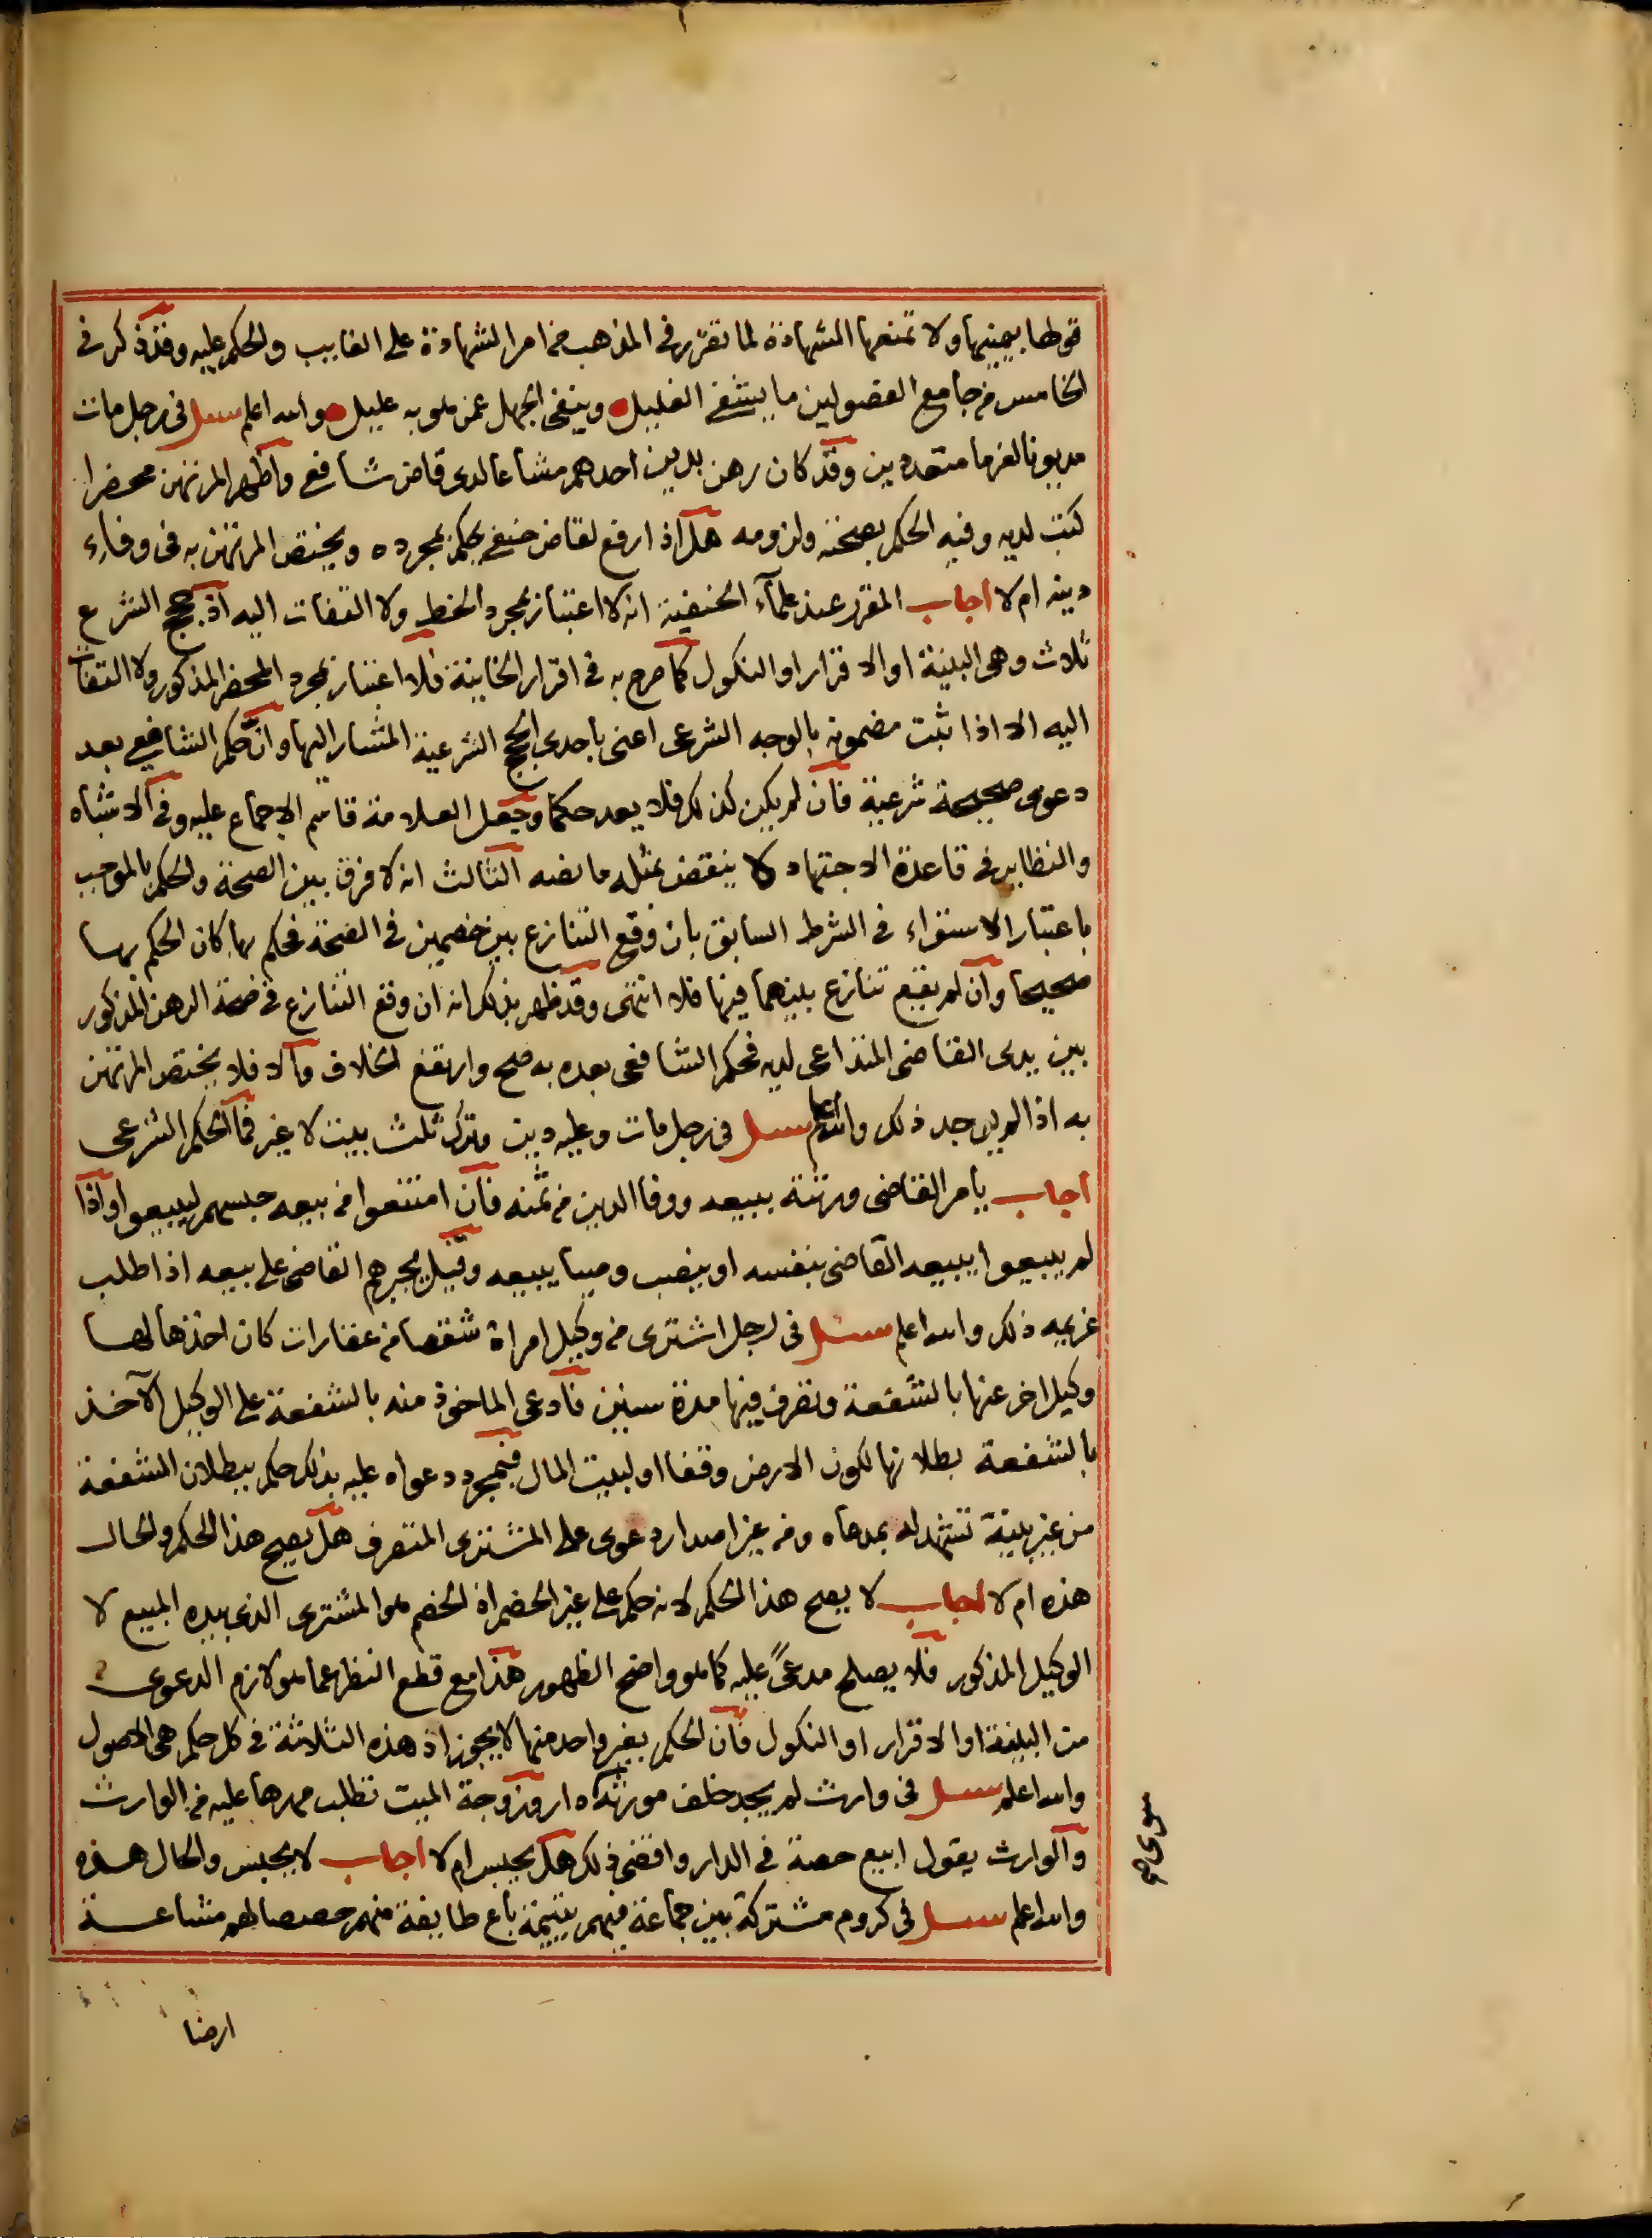 قولها بيمينها ولا تمنعها الشهادة لما تقرر في المذهب من امر الشهادة على الغايب والحكم عليه وقد ذكر في
الخامس من جامع الفصولين ما يشفى الغليل وينفى الجهل عمن هو به عليل والله اعلم سئل في رجل مات
مديونا لغرما متعددين وقد كان رهن بدين احدهم مشاعا لدى قاض شافعي واظهر المرتهن محضرا
كتب لديه وفيه الحكم بصحته ولزومه هل اذا رفع لقاض حنفي يحكم بمجرده ويختص المرتهن به في وفاء
دينه ام لا اجاب المقرر عند علمآء الحنفية انه لا اعتبار بمجرد الخط ولا التفات اليه اذ حجج الشرع
ثلاث وهي البينة او الاقرار او النكول كما صرح به في اقرار الخانية فلا اعتبار بمجرد المحضر المذكور ولا التفات
اليه الا اذا ثبت مضمونه بالوجه الشرعى اعنى باحدى الحجج الشرعية المشار اليها وان حكم الشافعي بعد
دعوى صحيحة شرعية فان لم يكن كذلك فلا يعد حكما وجعل العلامة قاسم الاجماع عليه وفي الاشباه
والنظاير في قاعدة الاجتهاد لا ينقض بمثله ما نصه الثالث انه لا فرق بين الصحة والحكم بالموجب
باعتبار الاستواء في الشرط السابق بان وقع التنازع بين خصمين في الصحة فحكم بها كان الحكم بها
صحيحا وان لم يقع تنازع بينهما فيها فلا انتهى وقد ظهر بذلك انه ان وقع التنازع في صحة الرهن المذكور
بين يدى القاضى المتداعى لديه فحكم الشافعى بعده به صح وارتفع الخلاف والا فلا يختص المرتهن
به اذا لم يوجد ذلك والله اعلم سئل في رجل مات وعليه دين وترك ثلث بيت لا غير فما الحكم الشرعى
اجاب يامر القاضى ورثته ببيعه ووفا الدين من ثمنه فان امتنعوا من بيعه حبسهم ليبيعوا واذا
لم يبيعوا يبيعه القاضى بنفسه او ينصب وصيا يبيعه وقيل يجبرهم القاضى على بيعه اذا طلب
غريمه ذلك والله اعلم سئل في رجل اشترى من وكيل امراة شقصا من عقارات كان اخذها لها
وكيل اخر عنها بالشفعة وتصرف فيها مدة سنين فادعى الماخوذ منه بالشفعة على الوكيل الآخذ
بالشفعة بطلانها لكون الارض وقفا او لبيت المال فبمجرد دعواه عليه بذلك حكم ببطلان الشفعة
من غير بينة تشهد له بمدعاه ومن غير اصدار دعوى على المشترى المتصرف هل يصح هذا الحكم والحال
هذه ام لا اجاب لا يصح هذا الحكم لانه حكم على غير الخصم اذ الخصم هو المشترى الذى بيده المبيع لا
الوكيل المذكور فلا يصلح مدعىً عليه كما هو واضح الظهور هذا مع قطع النظر عما هو لازم الدعوى
من البينة او الاقرار او النكول فان الحكم بغير واحد منها لا يجوز اذ هذه الثلاثة في كل حكم هي الاصول
والله اعلم سئل في وارث لم يجد خلف مورثه دارو زوجة الميت تطلب مهرها عليه من الوارث
والوارث يقول ابيع حصة في الدار واقضى ذلك هل يحبس ام لا اجاب لا يحبس والحال هذه
والله اعلم سئل في كروم مشتركة بين جماعة فيهم يتيمة باع طايفة منهم حصصا لهم مشاعة
سوى صح
ارضا